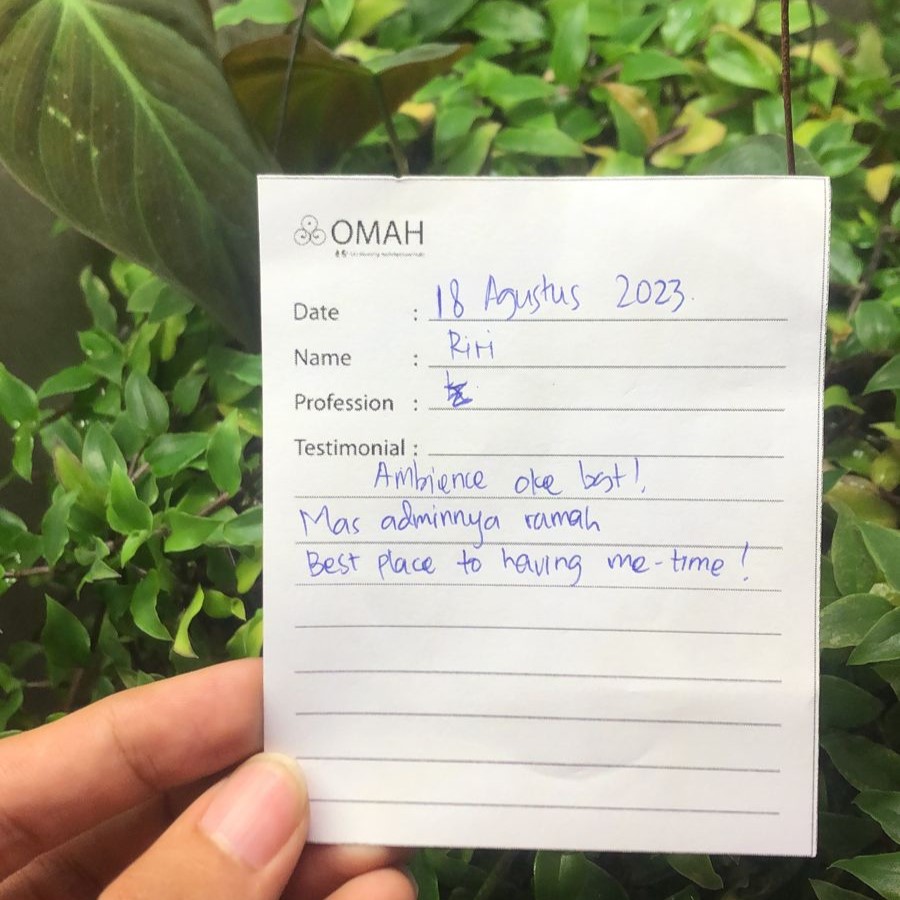 OMAH
Date : 18 Agustus 2023.
Name : Riri
Profession :
Testimonial :
Ambience oke bgt!
Mas adminnya ramah
Best place to having me-time!